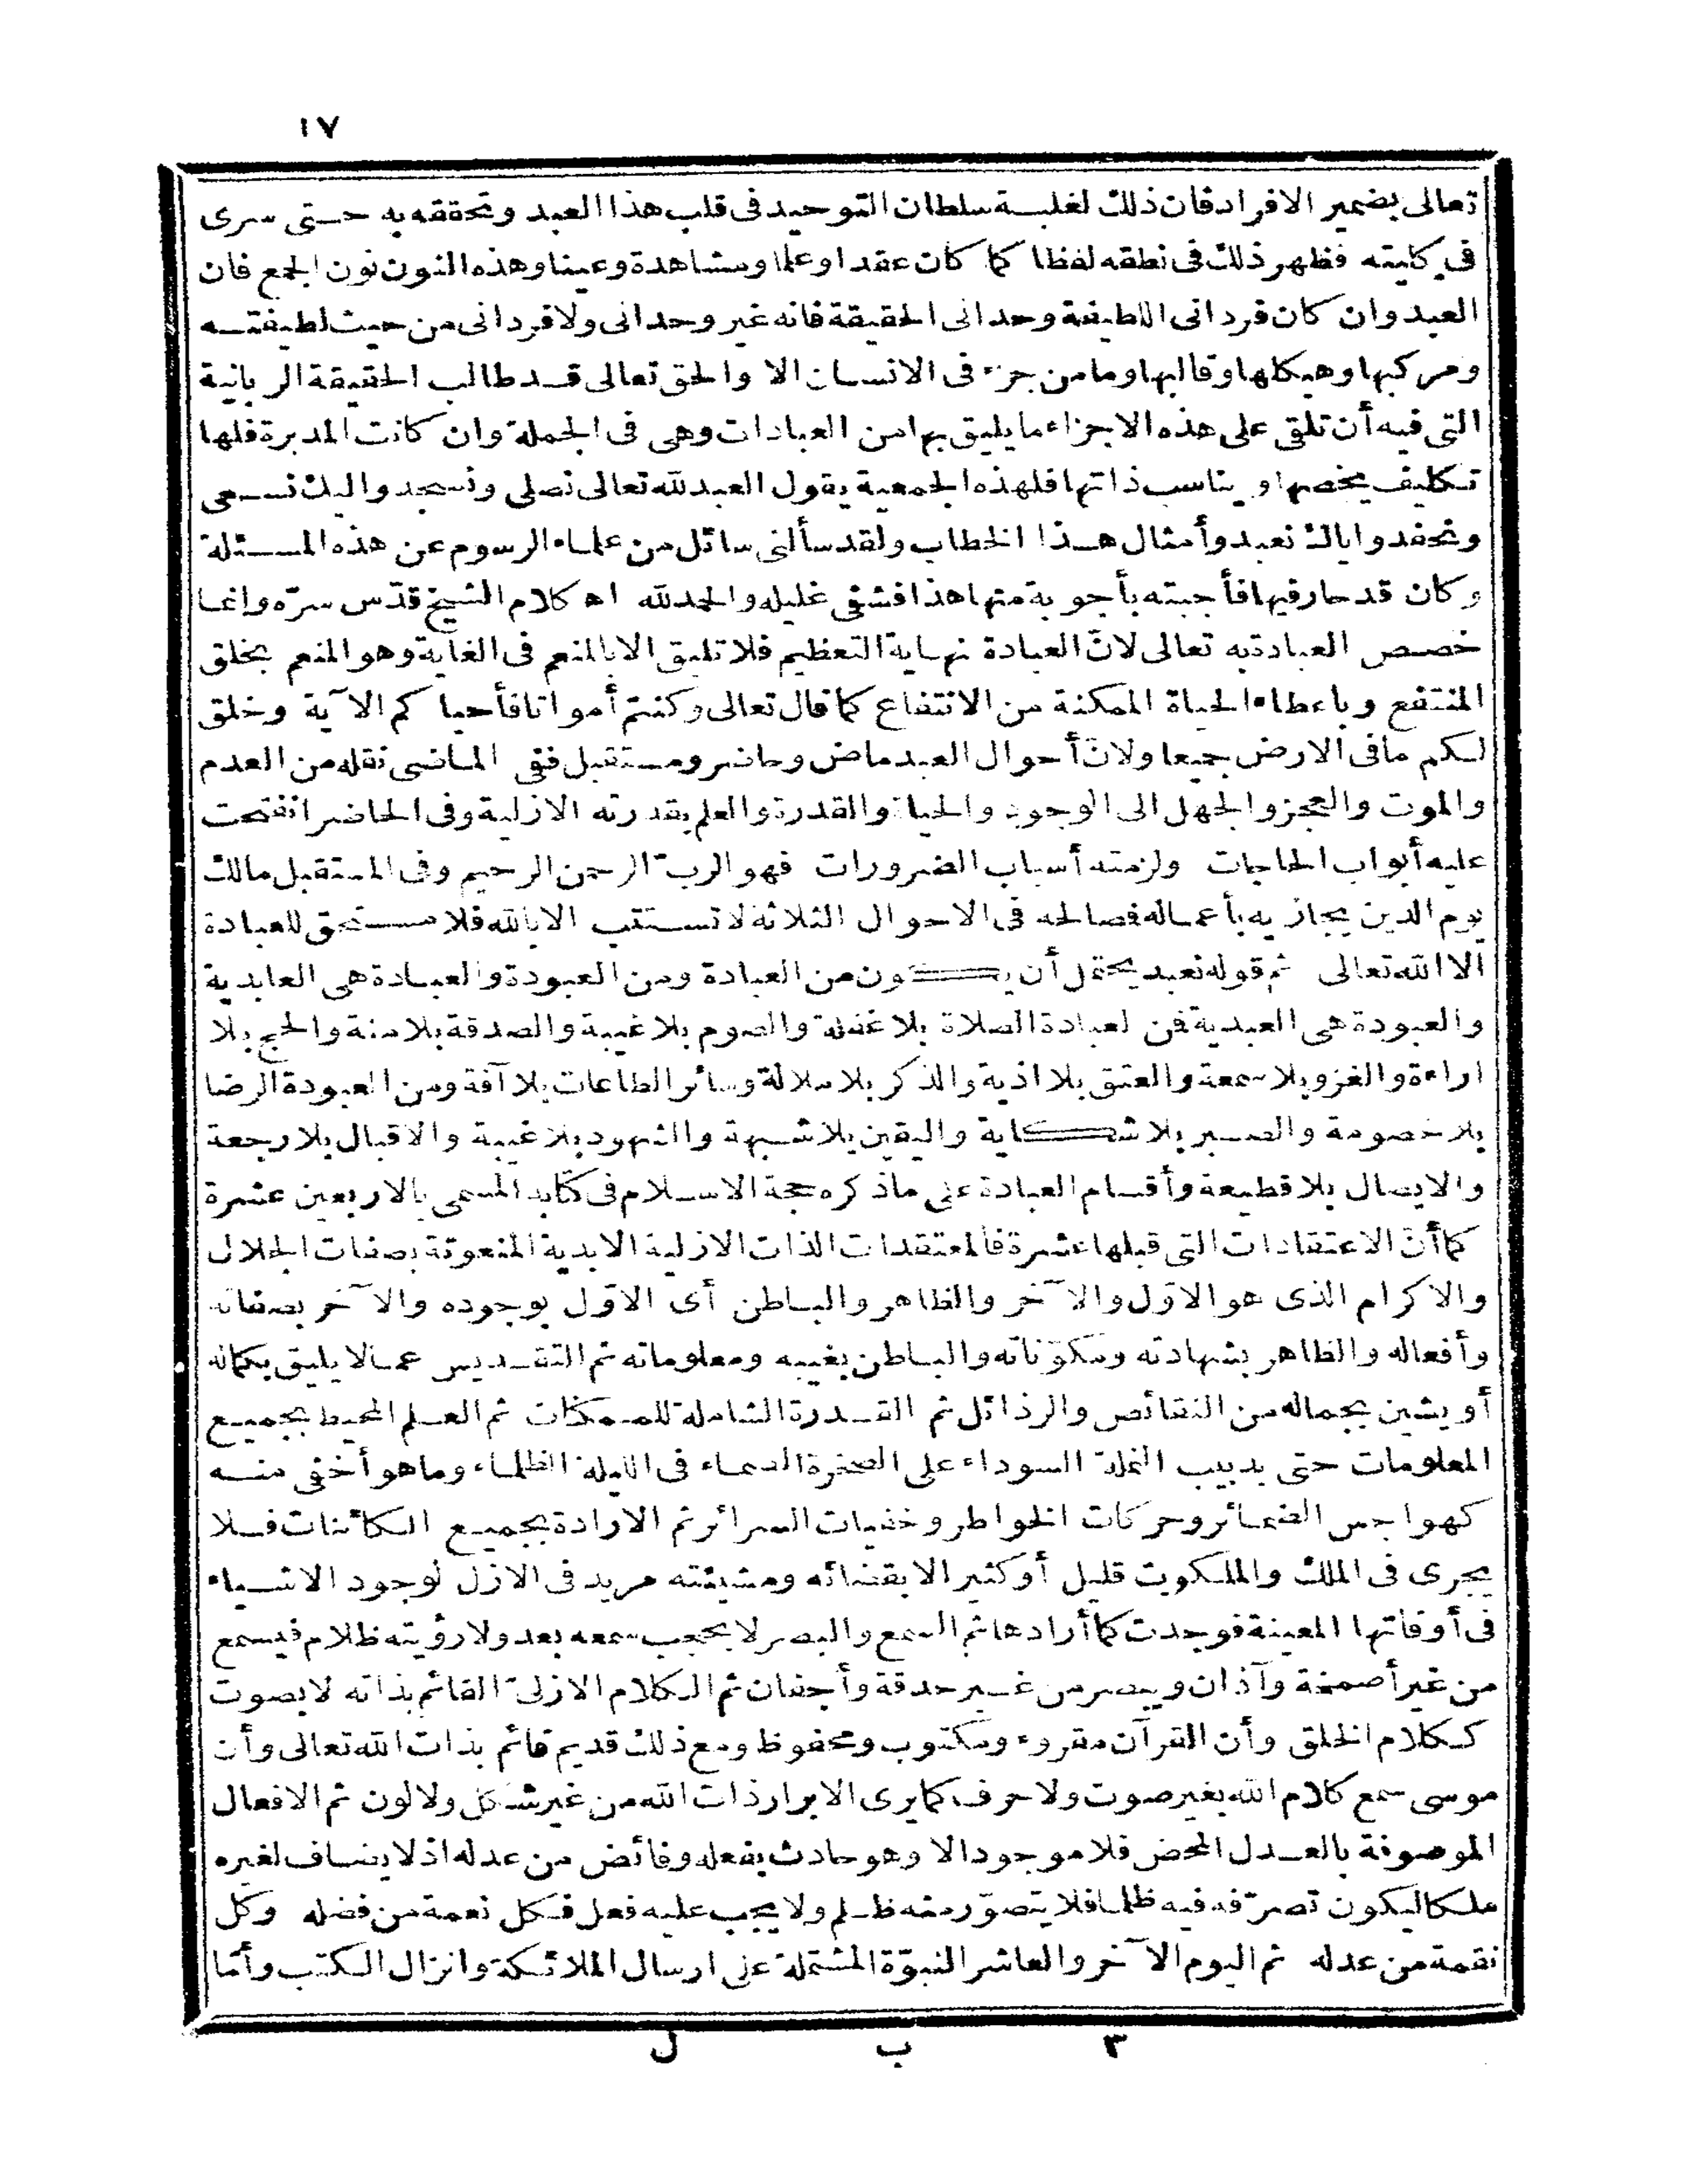 ١٧
تعالى بضمير الافراد فان ذلك لغلبة سلطان التوحيد فى قلب هذا العبد وتحققه به حتى سرى
فى كليته فظهر ذلك فى نطقه لفظا كما كان عقدا وعلما ومشاهدة وعينا وهذه النون نون الجمع فان
العبد وان كان فردانى اللطيفة وحدانى الحقيقة فانه غير وحدانى ولا فردانى من حيث لطيفته
ومركبها وهيكلها وقالبها وما من جزء فى الانسان الا والحق تعالى قد طالب الحقيقة الربانية
التى فيه أن تلقى على هذه الاجزاء ما يليق بها من العبادات وهى فى الجملة وان كانت المدبرة فلها
تكليف يخصها ويناسب ذاتها فلهذه الجمعية يقول العبد لله تعالى نصلى ونسجد واليك نسعى
ونحفد واياك نعبد وأمثال هذا الخطاب ولقد سألنى سائل من علماء الرسوم عن هذه المسئلة
وكان قد حار فيها فأجبته بأجوبة منها هذا فشفى غليله والحمد لله اه كلام الشيخ قدّس سرّه وانما
خصص العبادة به تعالى لانّ العبادة نهاية التعظيم فلا تليق الا بالمنعم فى الغاية وهو المنعم بخلق
المنتفع وباعطاء الحياة الممكنة من الانتفاع كما قال تعالى وكنتم أمواتا فأحياكم الآية وخلق
لكم ما فى الارض جميعا ولانّ أحوال العبد ماض وحاضر ومستقبل ففى الماضى نقله من العدم
والموت والعجز والجهل الى الوجود والحياة والقدرة والعلم بقدرته الازلية وفى الحاضر انفتحت
عليه أبواب الحاجات ولزمته أسباب الضرورات فهو الربّ الرحمن الرحيم وفى المستقبل مالك
يوم الدين يجازيه بأعماله فصالحه فى الاحوال الثلاثة لا تستتب الا بالله فلا مستحق للعبادة
الا الله تعالى ثم قوله نعبد يحتمل أن يكون من العبادة ومن العبودة والعبادة هى العابدية
والعبودة هى العبدية فمن العبادة الصلاة بلا غفلة والصوم بلا غيبة والصدقة بلا منة والحج بلا
اراءة والغزو بلا سمعة والعتق بلا اذية والذكر بلا ملالة وسائر الطاعات بلا آفة ومن العبودة الرضا
بلا خصومة والصبر بلا شكاية واليقين بلا شبهة والشهود بلا غيبة والاقبال بلا رجعة
والايصال بلا قطيعة وأقسام العبادة على ماذكره حجة الاسلام فى كتابه المسمى بالاربعين عشرة
كما أنّ الاعتقادات التى قبلها عشرة فالمعتقدات الذات الازلية الابدية المنعوتة بصفات الجلال
والاكرام الذى هو الاوّل والآخر والظاهر والباطن أى الاوّل بوجوده والآخر بصفاته
وأفعاله والظاهر بشهادته ومكوّناته والباطن بغيبه ومعلوماته ثم التقديس عما لا يليق بكماله
أو يشين بجماله من النقائص والرذائل ثم القدرة الشاملة للممكنات ثم العلم المحيط بجميع
المعلومات حتى بدبيب النملة السوداء على الصخرة الصماء فى الليلة الظلماء وما هو أخفى منه
كهواجس الضمائر وحركات الخواطر وخفيات السرائر ثم الارادة بجميع الكائنات فلا
يجرى فى الملك والملكوت قليل أو كثير الا بقضائه ومشيئته مريد فى الازل لوجود الاشياء
فى أوقاتها المعينة فوجدت كما أرادها ثم السمع والبصر لا يحجب سمعه بعد ولا رؤيته ظلام فيسمع
من غير أصمخة وآذان ويبصر من غير حدقة وأجفان ثم الكلام الازلىّ القائم بذاته لا بصوت
ككلام الخلق وأن القرآن مقروء ومكتوب ومحفوظ ومع ذلك قديم قائم بذات الله تعالى وأن
موسى سمع كلام الله بغير صوت ولا حرف كما يرى الابرار ذات الله من غير شكل ولا لون ثم الافعال
الموصوفة بالعدل المحض فلا موجود الا وهو حادث بفعله وفائض من عدله اذ لا يضاف لغيره
ملكا ليكون تصرّفه فيه ظلما فلا يتصوّر منه ظلم ولا يجب عليه فعل فكل نعمة من فضله وكل
نقمة من عدله ثم اليوم الآخر والعاشر النبوّة المشتملة على ارسال الملائكة وانزال الكتب وأمّا
٣ ب ل